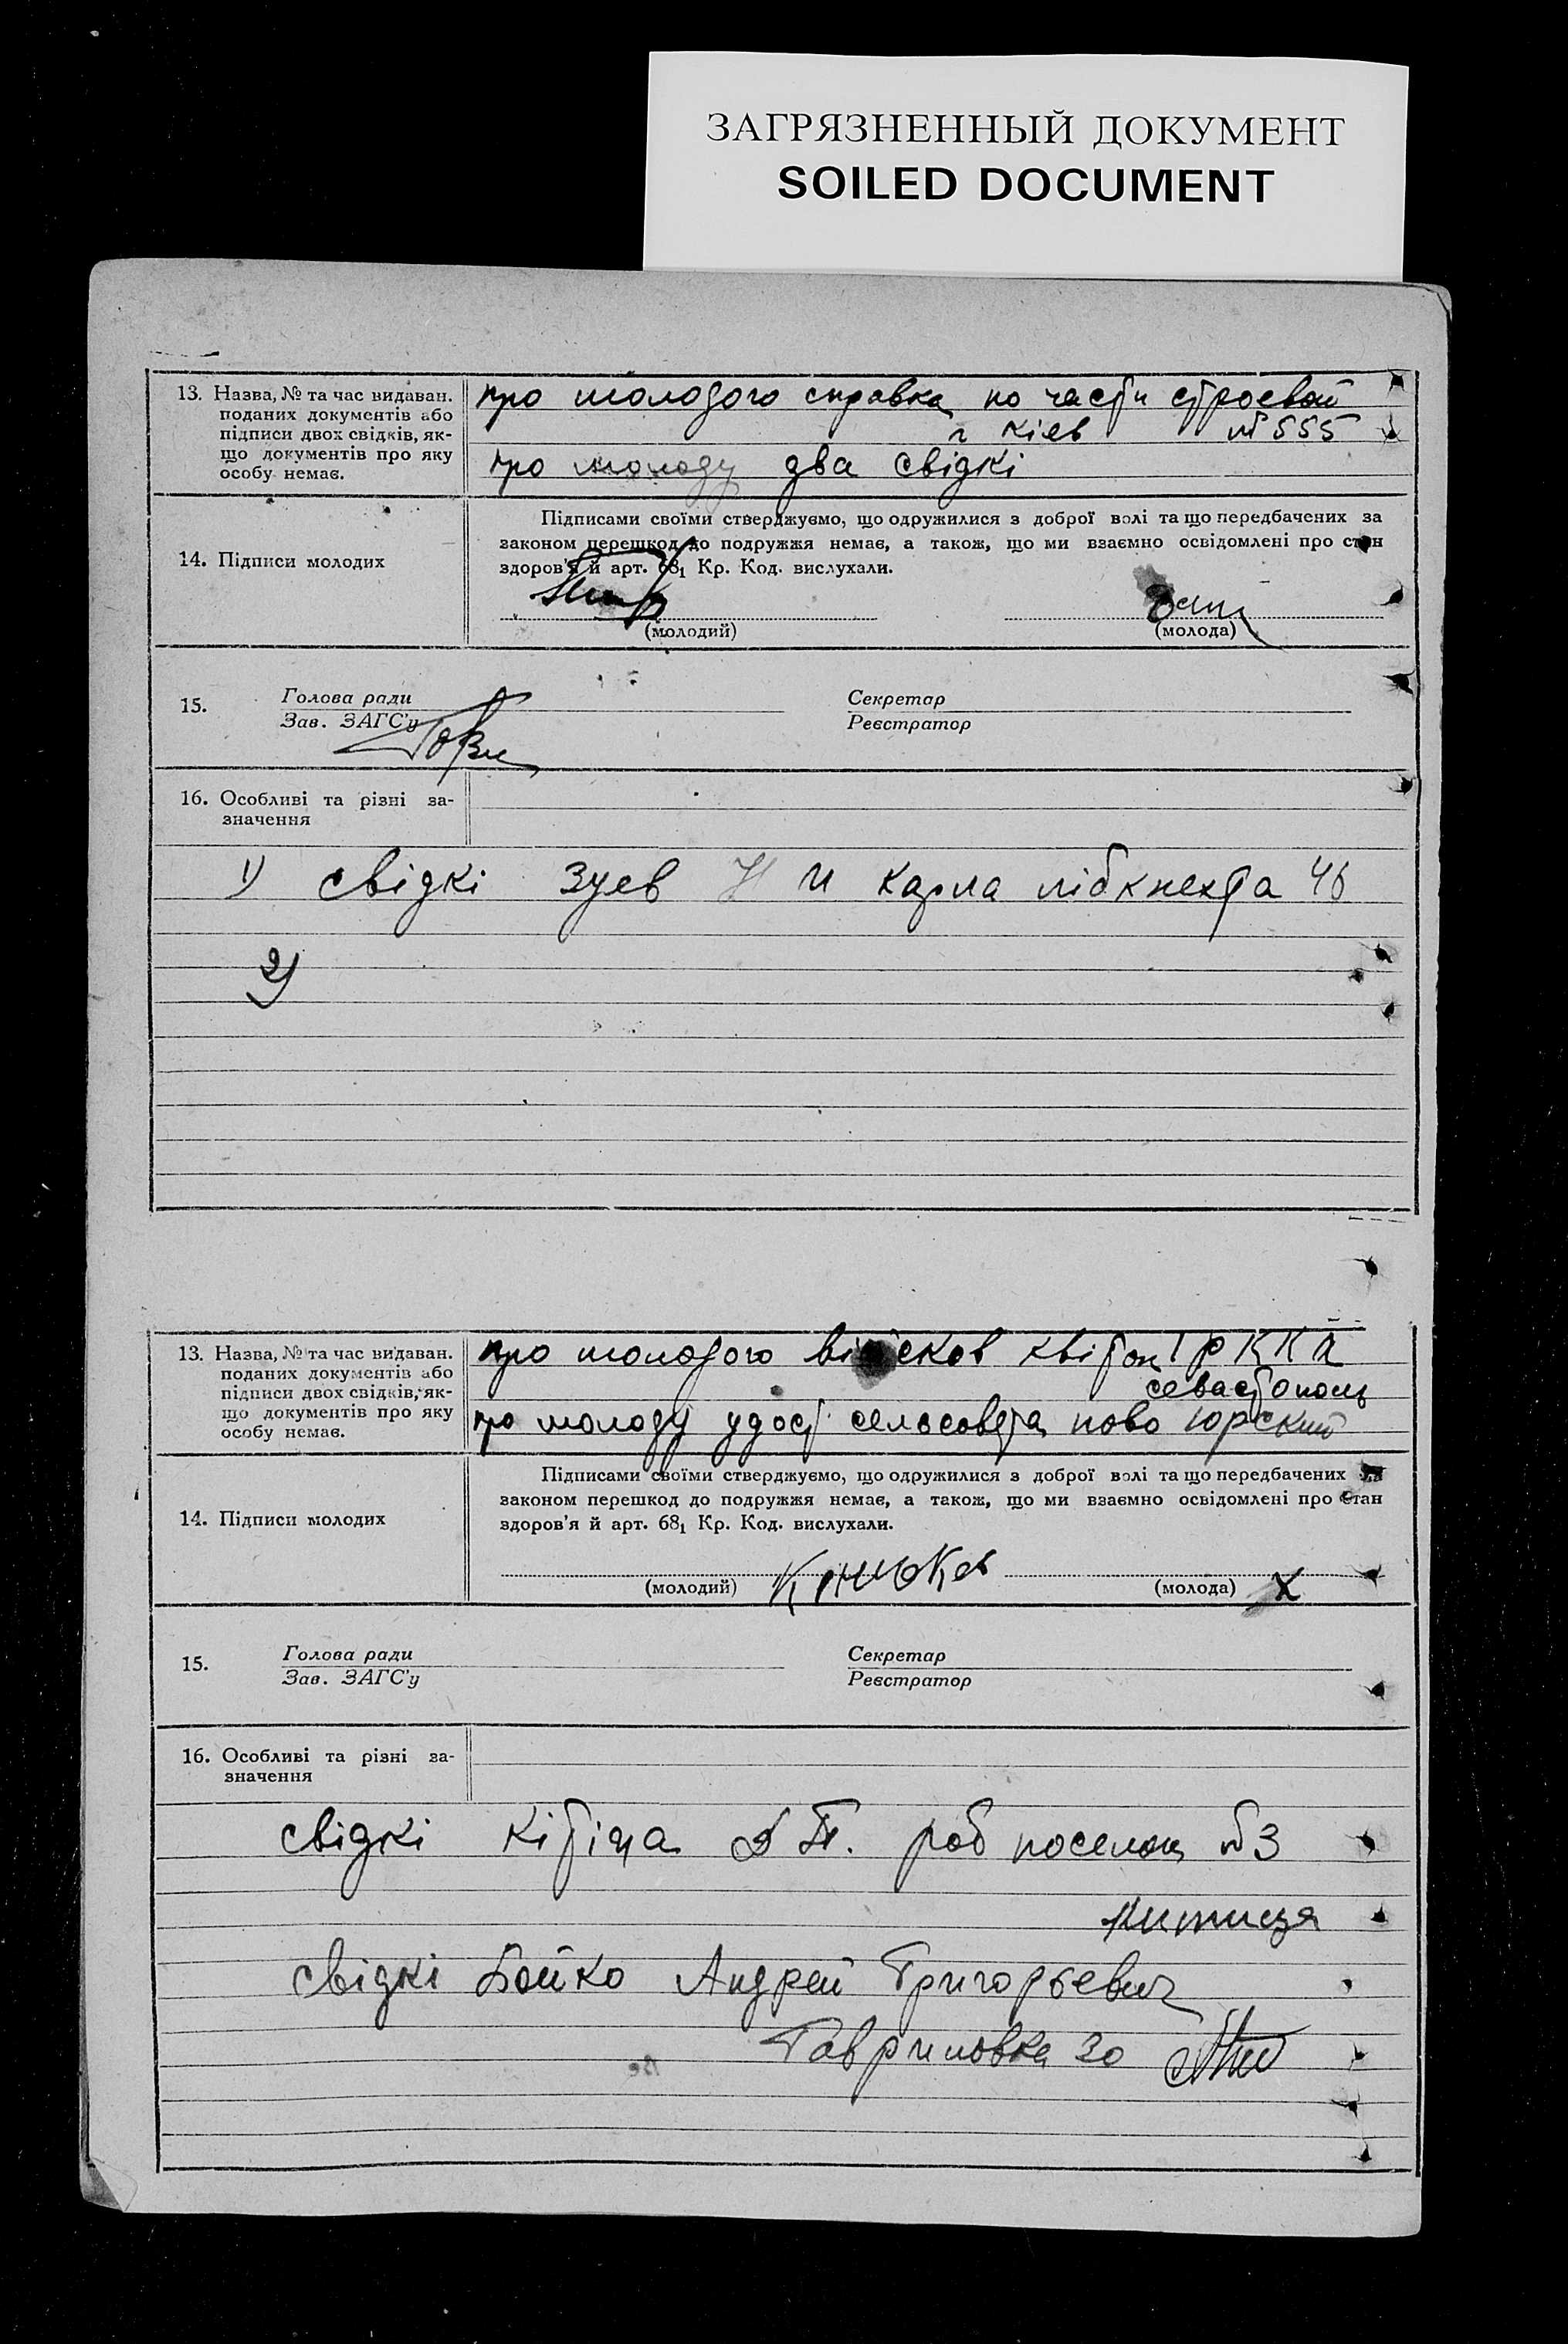 ЗАГРЯЗНЕННЫЙ ДОКУМЕНТ
SOILED DOCUMENT
13. Назва, № та час видаван.
поданих документів або
підписи двох свідків, як-
що документів про яку
особу немає.
про молодого справка по части строевой
г Кіев № 555
про молоду два свідкі
14. Підписи молодих
Підписами своїми стверджуємо, що одружилися з доброї волі та що передбачених за
законом перешкод до подружжя немає, а також, що ми взаємно освідомлені про стан
здоров'я й арт. 68₁ Кр. Код. вислухали.
(молодий) (молода)
15. Голова ради Секретар
Зав. ЗАГС'у Реєстратор
16. Особливі та різні за-
значення
1) свідкі Зуев Н И Карла лібкнехта 46
2)
13. Назва, № та час видаван.
поданих документів або
підписи двох свідків, як-
що документів про яку
особу немає.
про молодого квіток РККА
севастополь
про молоду удост сельсовета ново Юрский
14. Підписи молодих
Підписами своїми стверджуємо, що одружилися з доброї волі та що передбачених за
законом перешкод до подружжя немає, а також, що ми взаємно освідомлені про стан
здоров'я й арт. 68₁ Кр. Код. вислухали.
(молодий) (молода) х
15. Голова ради Секретар
Зав. ЗАГС'у Реєстратор
16. Особливі та різні за-
значення
свідкі раб поселок №3
свідкі Бойко Андрей Григорьевич
Гавриловка 30